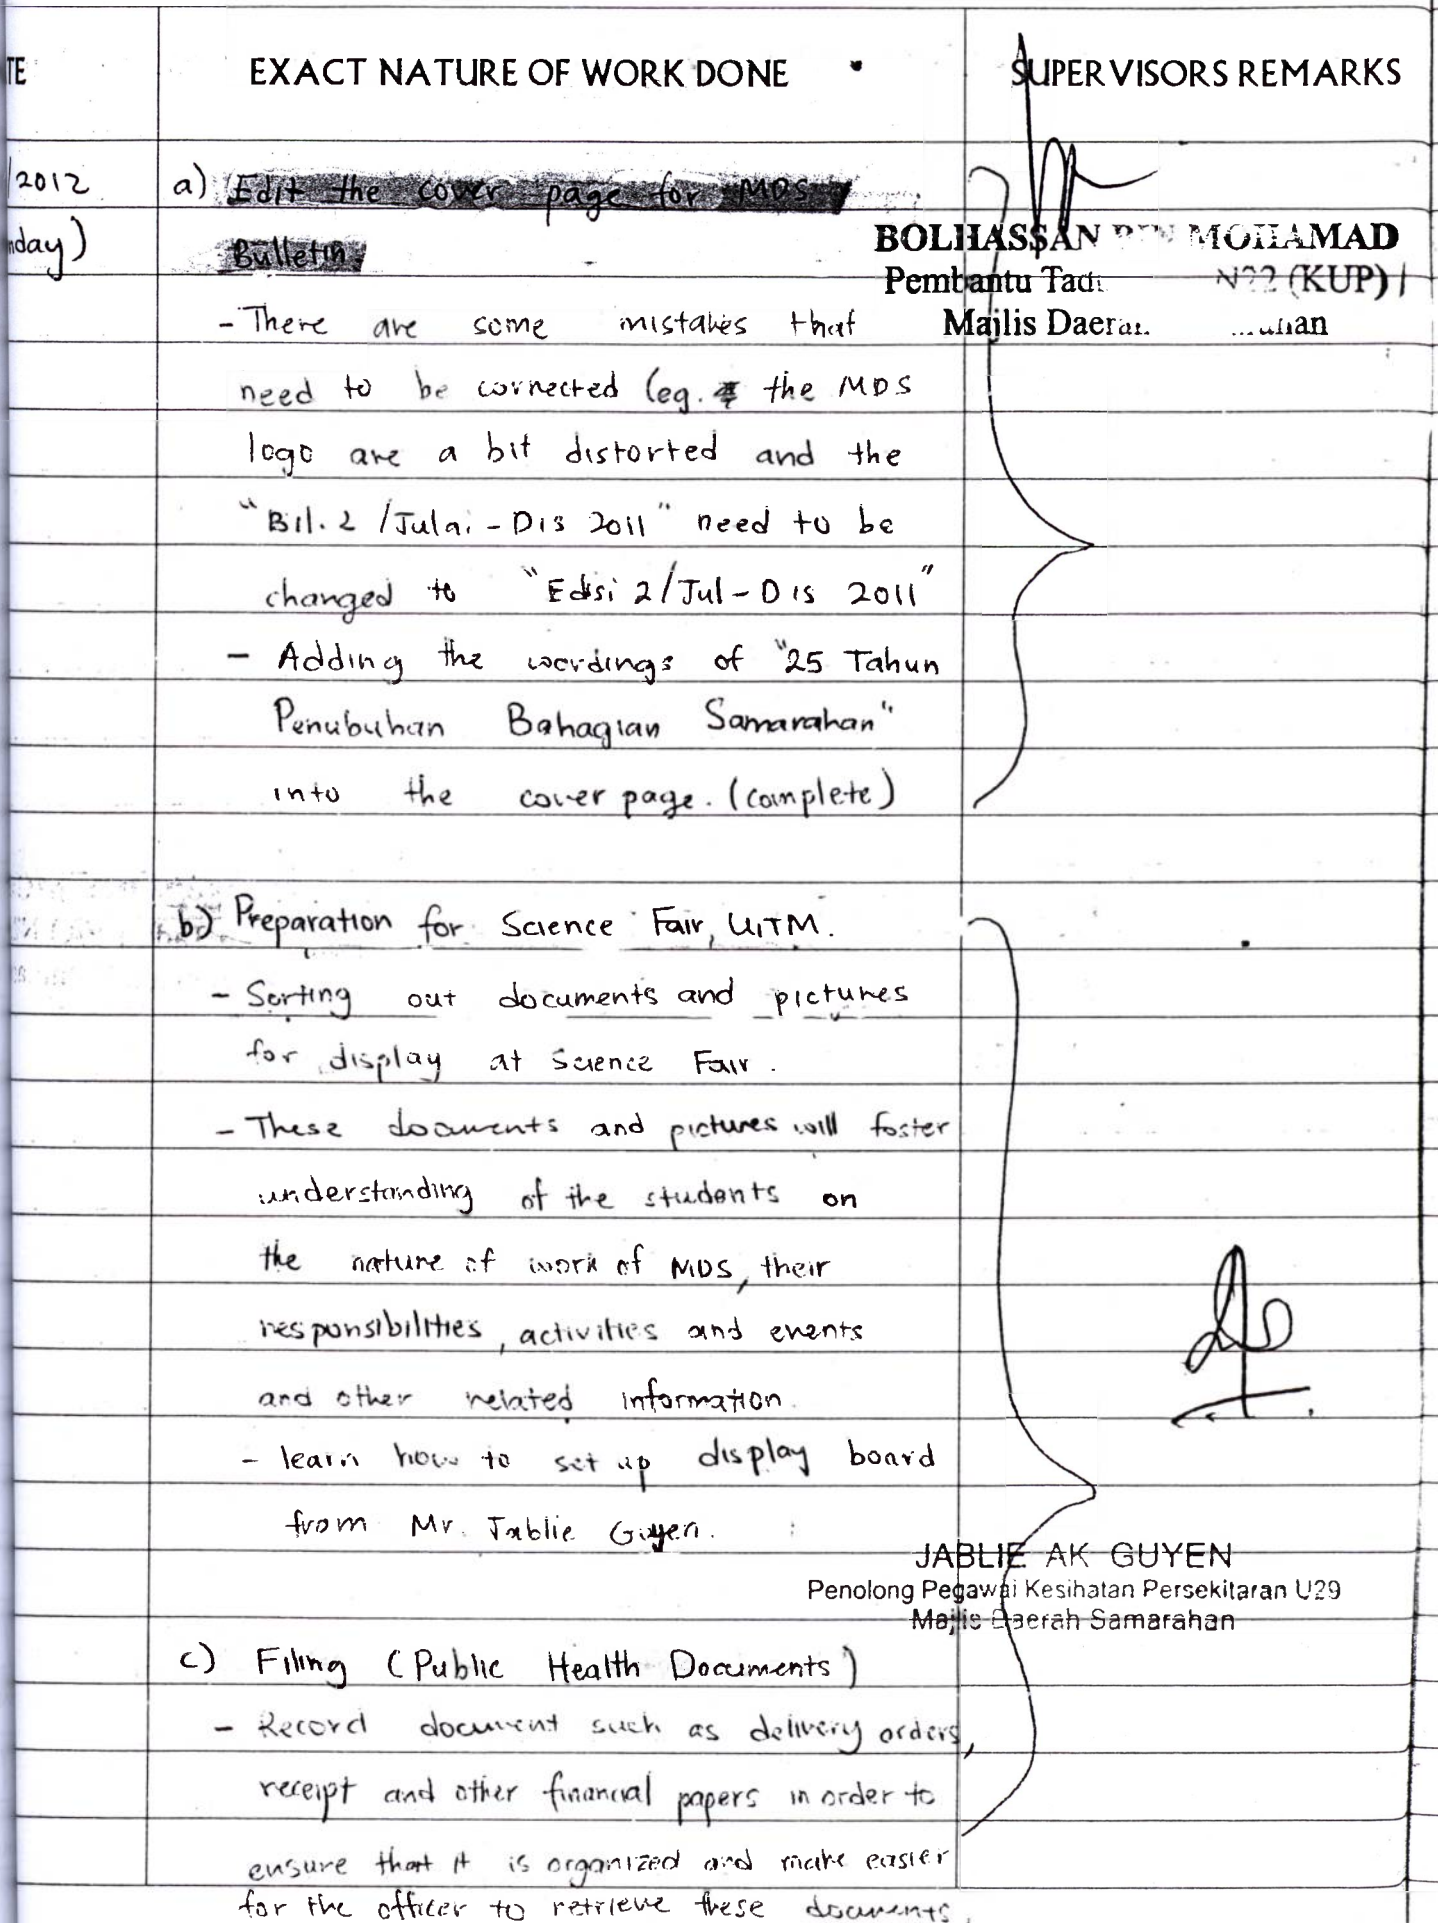 TE EXACT NATURE OF WORK DONE SUPERVISORS REMARKS
/2012 a) Edit the cover page for MDS
nday) Bulletin
BOLHASSAN BIN MOHAMAD
Pembantu N22 (KUP)
Majlis
- There are some mistakes that
need to be corrected (eg. the MDS
logo are a bit distorted and the
"Bil. 2 /Julai - Dis 2011" need to be
changed to "Edisi 2/Jul - Dis 2011"
- Adding the wordings of "25 Tahun
Penubuhan Bahagian Samarahan"
into the cover page. (complete)
b) Preparation for Science Fair, UiTM.
- Sorting out documents and pictures
for display at Science Fair.
- These documents and pictures will foster
understanding of the students on
the nature of work of MDS, their
responsibilities, activities and events
and other related information.
- learn how to set up display board
from Mr. Jablie Guyen.
JABLIE AK GUYEN
Penolong Pegawai Kesihatan Persekitaran U29
Majlis Daerah Samarahan
c) Filing (Public Health Documents)
- Record document such as delivery orders,
receipt and other financial papers in order to
ensure that it is organized and make easier
for the officer to retrieve these documents.